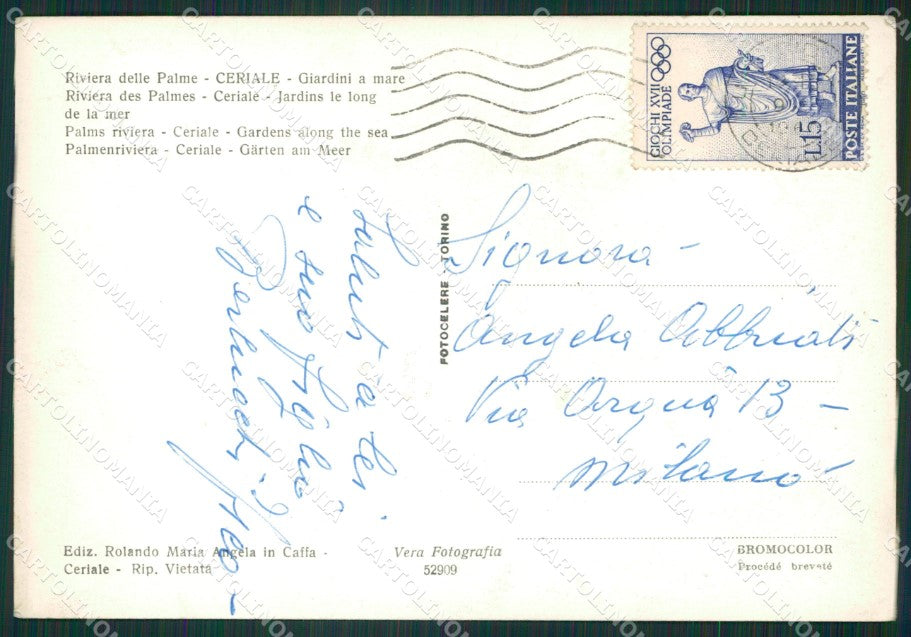 Riviera delle Palme - CERIALE - Giardini a mare
Riviera des Palmes - Ceriale - Jardins le long
de la mer
Palms riviera - Ceriale - Gardens along the sea
Palmenriviera - Ceriale - Gärten am Meer
GIOCHI XVII
OLIMPIADE
L.15
POSTE ITALIANE
Saluti a lei
e suo figlio
FOTOCELERE - TORINO
Signora -
Angela Abbuati
Via Arquà 13 -
Milano
Ediz. Rolando Maria Angela in Caffa -
Ceriale - Rip. Vietata
Vera Fotografia
52909
BROMOCOLOR
Procédé breveté
CARTOLINOMANIA